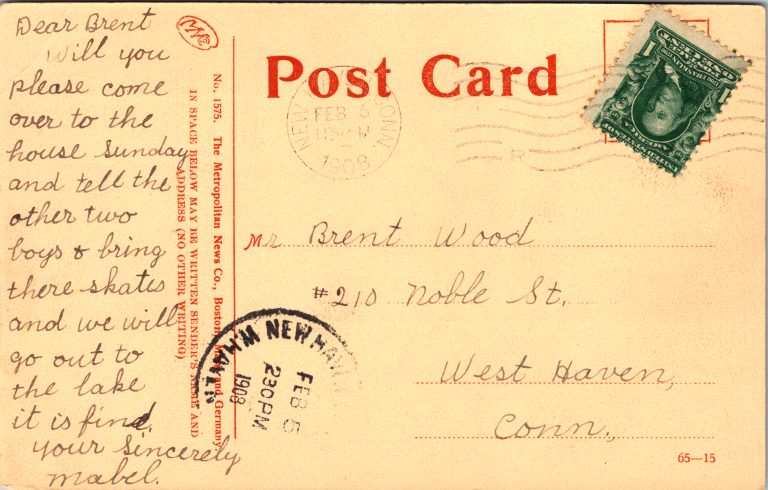 Dear Brent
Will you
please come
over to the
house Sunday
and tell the
other two
boys & bring
there skates
and we will
go out to
the lake
it is fine.
your Sincerely
Mabel.
No. 1575. The Metropolitan News Co., Boston, and Germany
IN SPACE BELOW MAY BE WRITTEN SENDER'S NAME AND
ADDRESS (NO OTHER WRITING)
Post Card
NEW CONN.
FEB 5
1908
1
Mr Brent Wood
#210 Noble St.
West Haven,
Conn.
W.HAVEN NEW HAVEN
FEB 5
230PM
1908
65—15